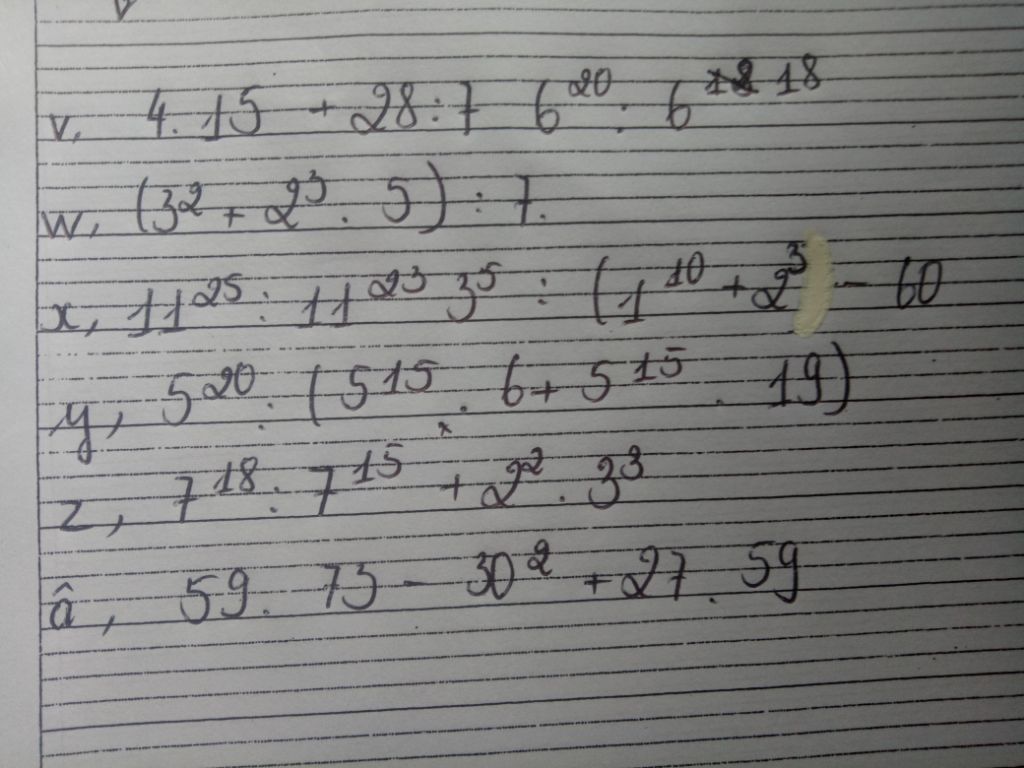 v, 4.15 + 28:7 6^20 : 6^18
w, (3^2 + 2^3 . 5) : 7.
x, 11^25 : 11^23 3^5 : (1^10 + 2^3) - 60
y, 5^20 : (5^15 . 6 + 5^15 . 19)
z, 7^18 : 7^15 + 2^2 . 3^3
â, 59. 73 - 30^2 + 27. 59